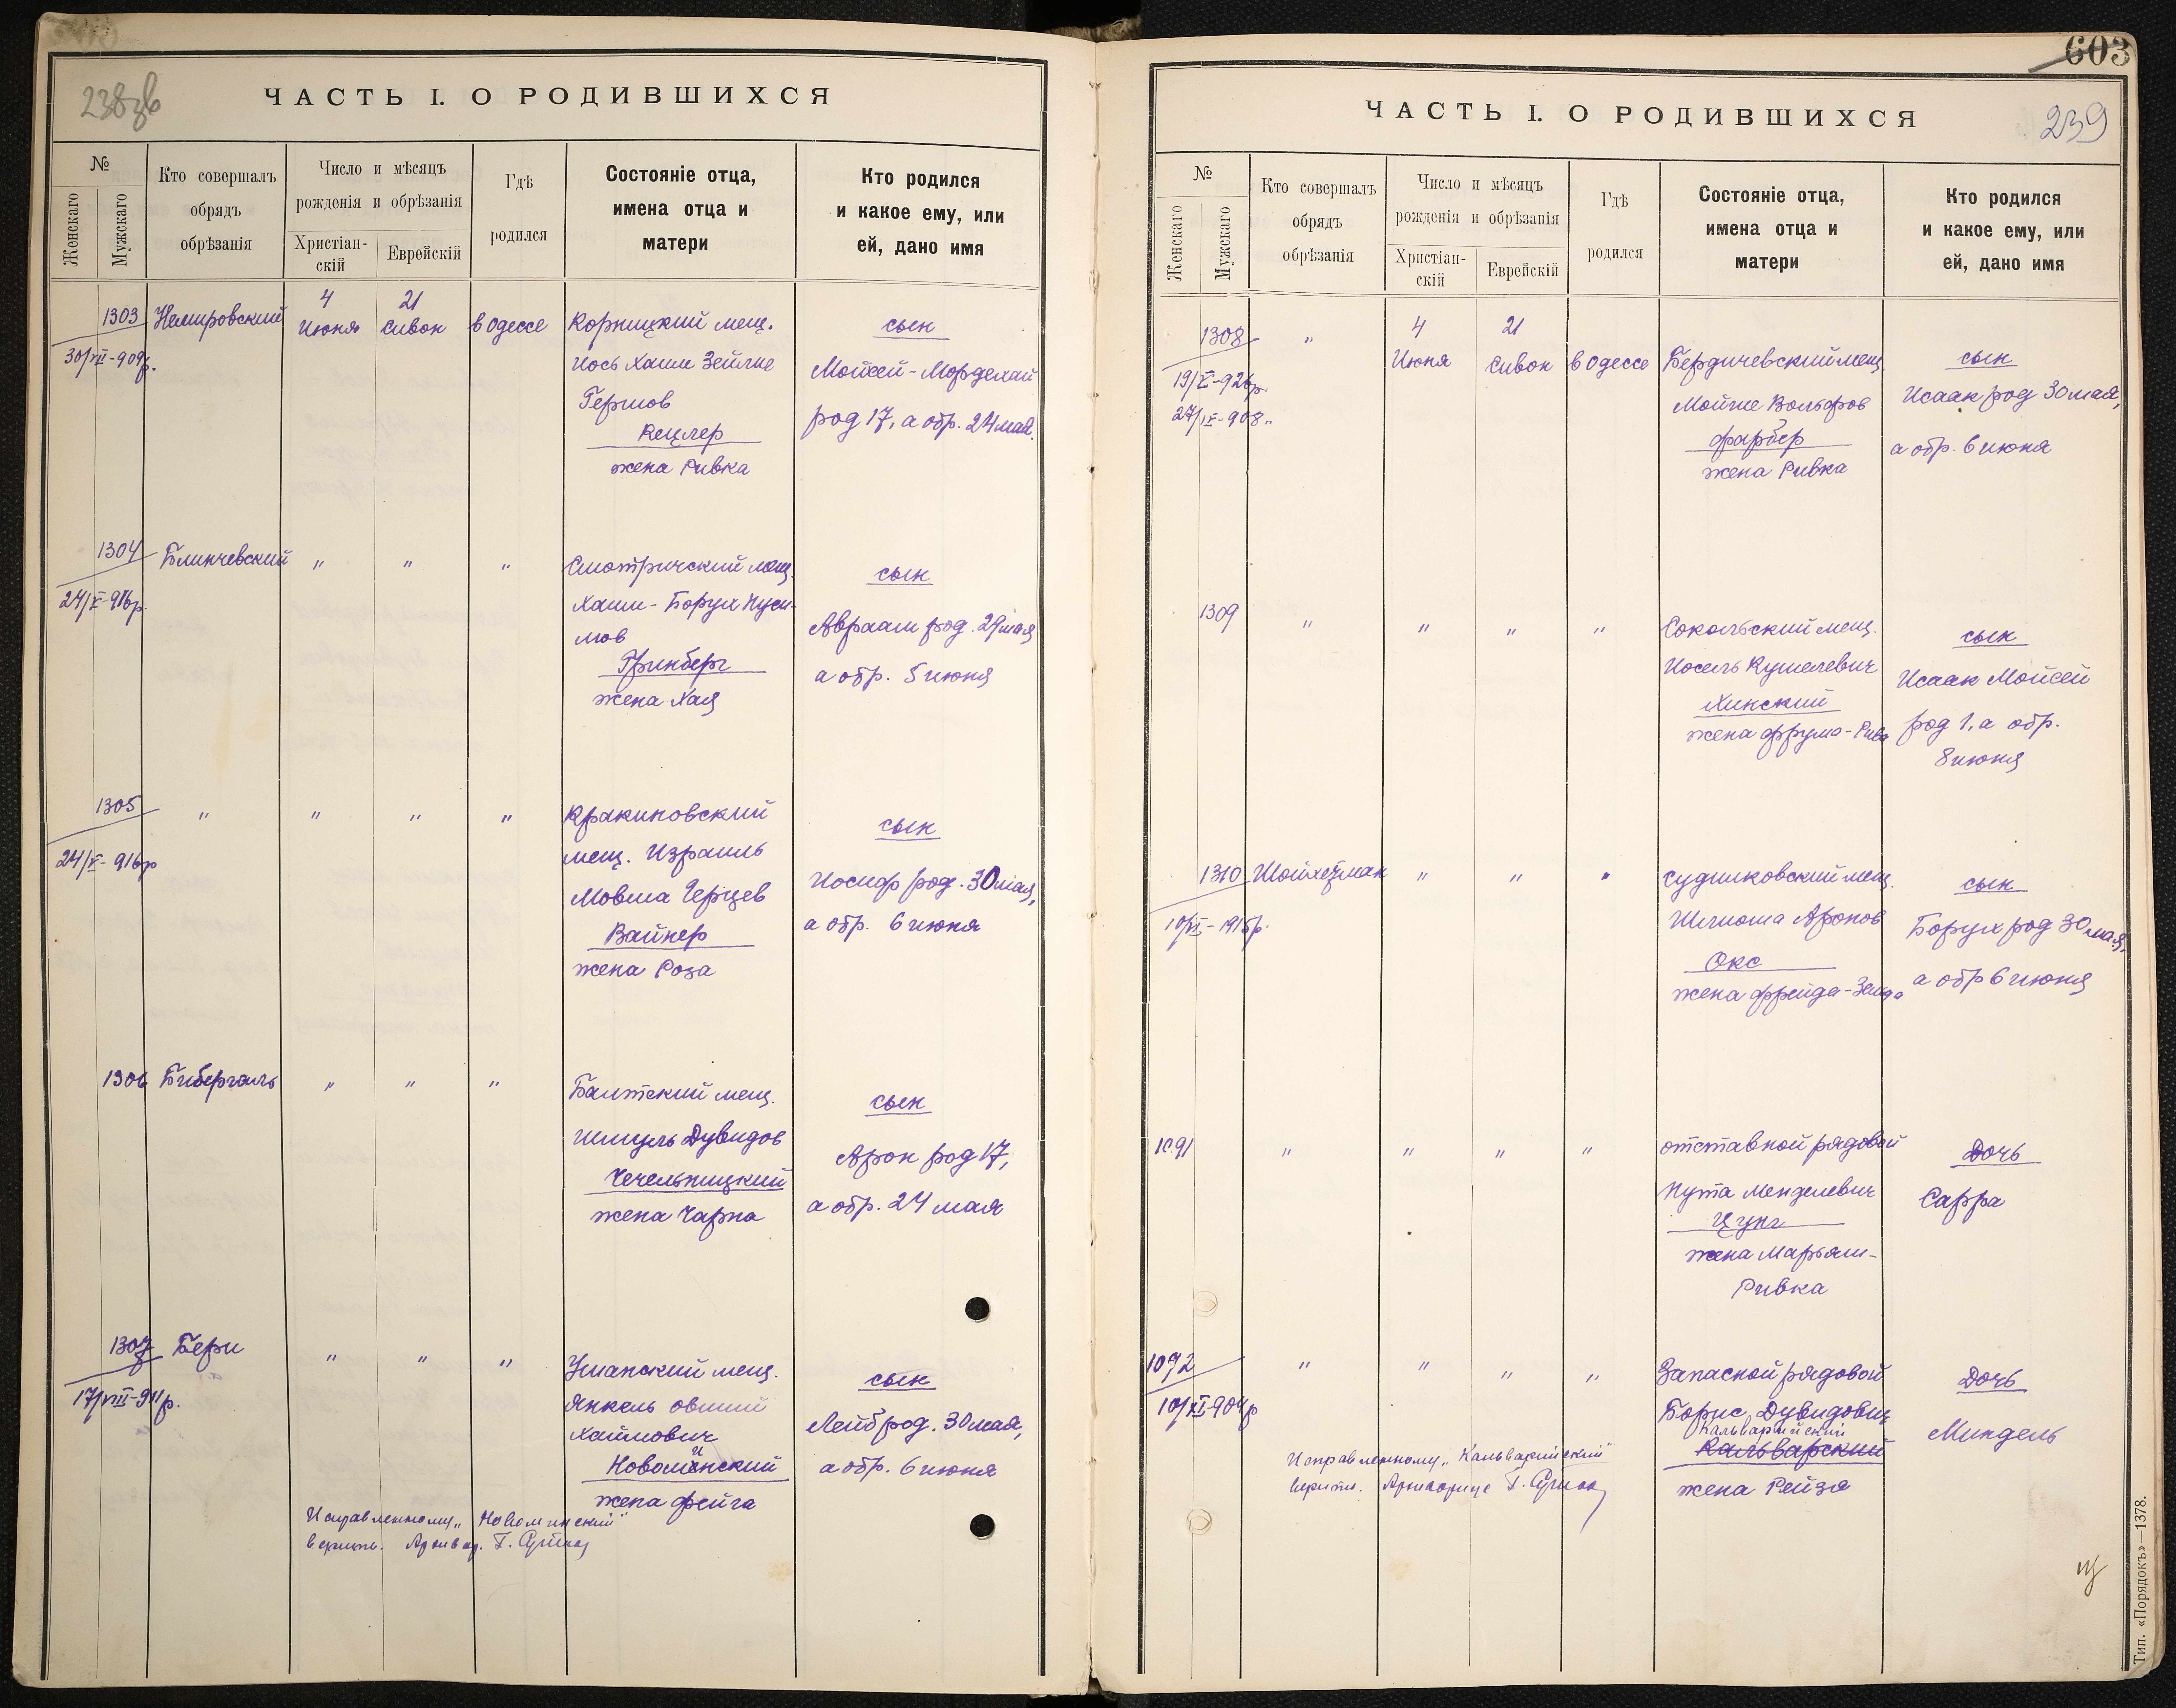 238зв
ЧАСТЬ I. О РОДИВШИХСЯ
№
Женскаго
Мужскаго
Кто совершалъ
обрядъ
обрѣзанія
Число и мѣсяцъ
рожденія и обрѣзанія
Христіан-
скій
Еврейскій
Гдѣ
родился
Состояніе отца,
имена отца и
матери
Кто родился
и какое ему, или
ей, дано имя
1303 Немировский 4 Июня 21 Сивон в Одессе
30/VII-909р.
Корницкий мещ.
Иось Хаим Зейлие
Гершов
Кецлер
жена Ривка
сын
Мойсей-Мордехай
род 17, а обр. 24 мая.
1304 Блинчевский " " "
24/X-916р.
Смотричский мещ.
Хаим-Борух Нуси-
мов
Гринберг
жена Хая
сын
Авраам род. 29 мая
а обр. 5 июня
1305 " " " "
24/X-916р
Кракиновский
мещ. Израиль
Мовша Герцев
Вайнер
жена Роза
сын
Иосиф род. 30 мая,
а обр. 6 июня
1306 Бибергаль " " "
Балтский мещ.
Шмуль Дувидов
Чечельницкий
жена Чарна
сын
Арон род 17,
а обр. 24 мая
1307 Бери " " "
17/VIII-911р.
Уманский мещ.
Янкель овший
Хаимович
и
Новоминский
жена фейга
сын
Лейб род. 30 мая,
а обр. 6 июня
Исправленному „Новоминский"
верить.
603
239
ЧАСТЬ I. О РОДИВШИХСЯ
№
Женскаго
Мужскаго
Кто совершалъ
обрядъ
обрѣзанія
Число и мѣсяцъ
рожденія и обрѣзанія
Христіан-
скій
Еврейскій
Гдѣ
родился
Состояніе отца,
имена отца и
матери
Кто родился
и какое ему, или
ей, дано имя
1308 " 4 Июня 21 Сивон в Одессе
19/X-926р
27/IX-908
Бердичевский мещ.
Мойше Вольфов
фарбер
жена Ривка
сын
Исаак род 30 мая,
а обр. 6 июня
1309 " " " "
Сокольский мещ.
Иосель Кушелевич
Хинский
жена фрума-Рива
сын
Исаак Мойсей
род 1, а обр.
8 июня
1310 Шойхетман " " "
10/VI-1915р.
Судилковский мещ.
Шлиома Аронов
Окс
жена фрейда-Зельда
сын
Борух род 30 мая,
а обр 6 июня
1091 " " " "
отставной рядовой
Нута Менделевич
Цунг
жена Марьям-
Ривка
Дочь
Сарра
1092 " " " "
10/XI-904р
Запасной рядовой
Борис Дувидович
Кальварийский
Кальварский
жена Рейзя
Дочь
Миндель
Исправленному „Кальварийский"
верить.
Тип. «Порядокъ»—1378.